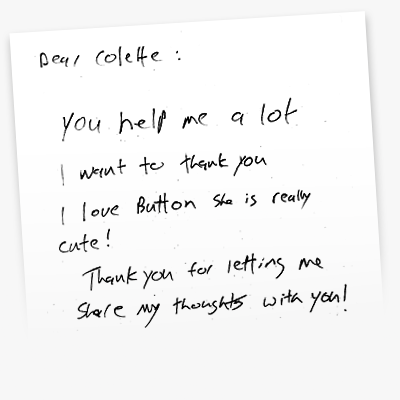 Dear Colette :
you help me a lot
I want to thank you
I love Button she is really
cute!
Thank you for letting me
share my thoughts with you!